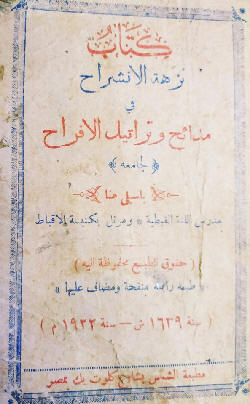 كتاب
نزهة الانشراح
في
مدائح وتراتيل الأفراح
﴿ لجامعه ﴾
باسيلي حنا
مدرس اللغة القبطية ومرتل بكنيسة الاقباط
( حقوق الطبع محفوظة اليه )
« طبعة رابعة منقحة ومضاف عليها »
( سنة ١٦٣٩ ش – سنة ١٩٢٢ م )
مطبعة الشمس بشارع كلوت بك بمصر